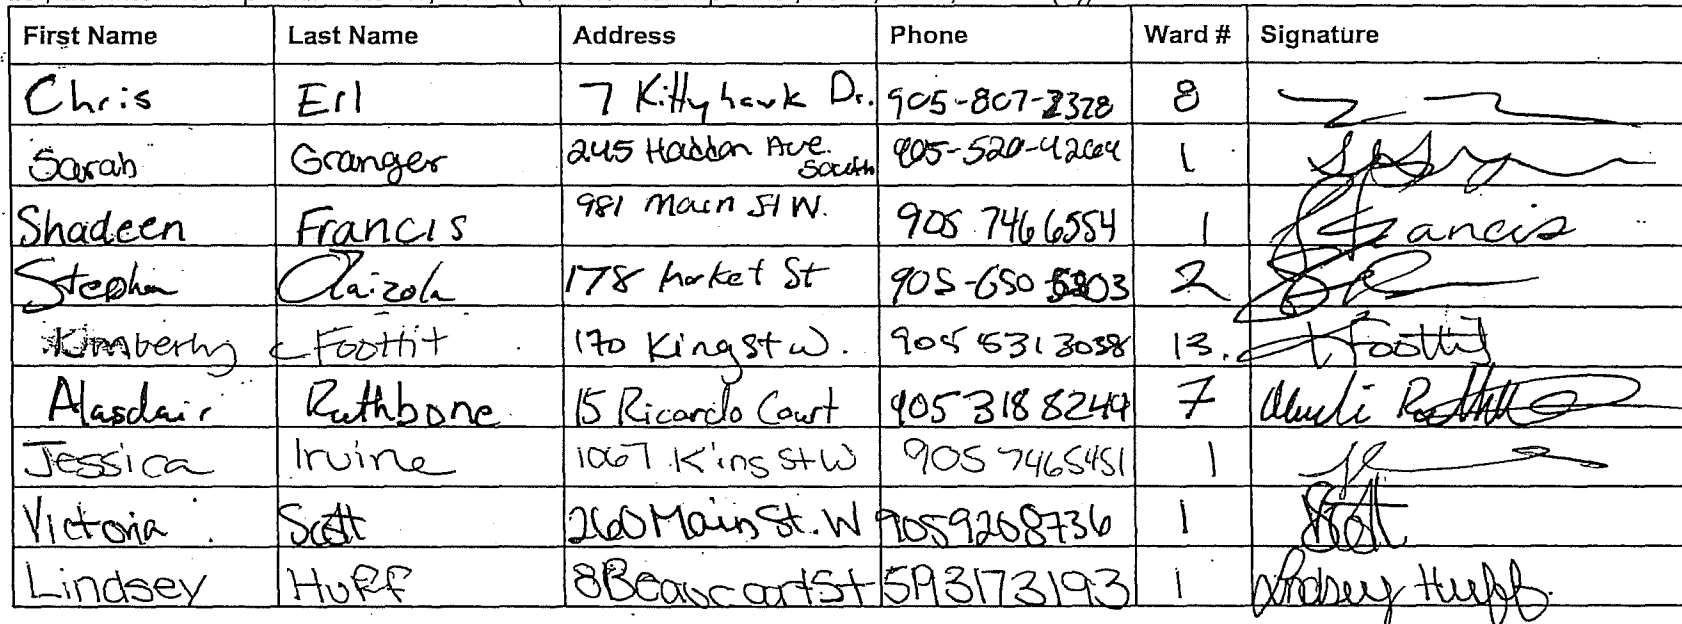 First Name Last Name Address Phone Ward # Signature
Chris Erl 7 Kittyhawk Dr. 905-807-2328 8
Sarah Granger 245 Haddon Ave. South 905-520-4264 1
Shadeen Francis 981 Main St W. 905 746 6554 1 Francis
Stephen Olaizola 178 Market St 905-650-5303 2
Kimberly Foottit 170 King St W. 905 531 3038 13. K Foottit
Alasdair Rathbone 15 Ricardo Court 905 318 8244 7
Jessica Irvine 1067 King St W 905 7465451 1
Victoria Scott 260 Main St. W 9059208736 1 Scott
Lindsey Huff 1 Lindsey Huff